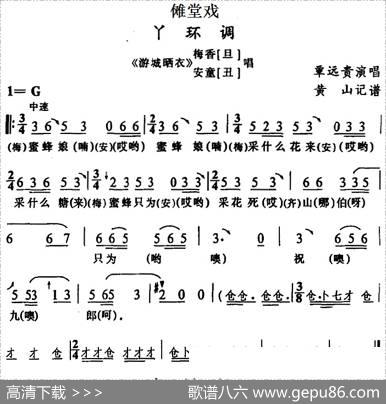 傩堂戏
丫环调
《游城晒衣》梅香[旦]安童[丑]唱
覃远贵演唱
1=G 中速 黄山记谱
3/4 3 6 5 3 0 6 6 2/4 3 6 5 3 3/4 5 2 3 5 3 0 6 6
(梅)蜜蜂娘(喃)(安)(哎哟) 蜜蜂娘(喃)(梅)采什么花来(安)(哎哟)
2/4 6 3 6 6 3/4 3 2 3 5 3 0 6 6 2/4 5 3 5 6 6 3 3 5
采什么糖(来)(梅)蜜蜂只为(安)(哎哟)采花死(哎)(齐)山(哪)伯(呀)
6 6 7 6 6 5 5 6 5 3· 0 3 6 6 5
只为(哟噢)祝(噢)
5 5 3 1 3 5 6 5 3 2 0 0 仓仓·仓仓· 3/8 仓·卜七才仓
九(噢)郎(呵)·
才才仓 2/4 才才仓才才仓 仓卜
高清下载 >>> 歌谱八六 www.gepu86.com